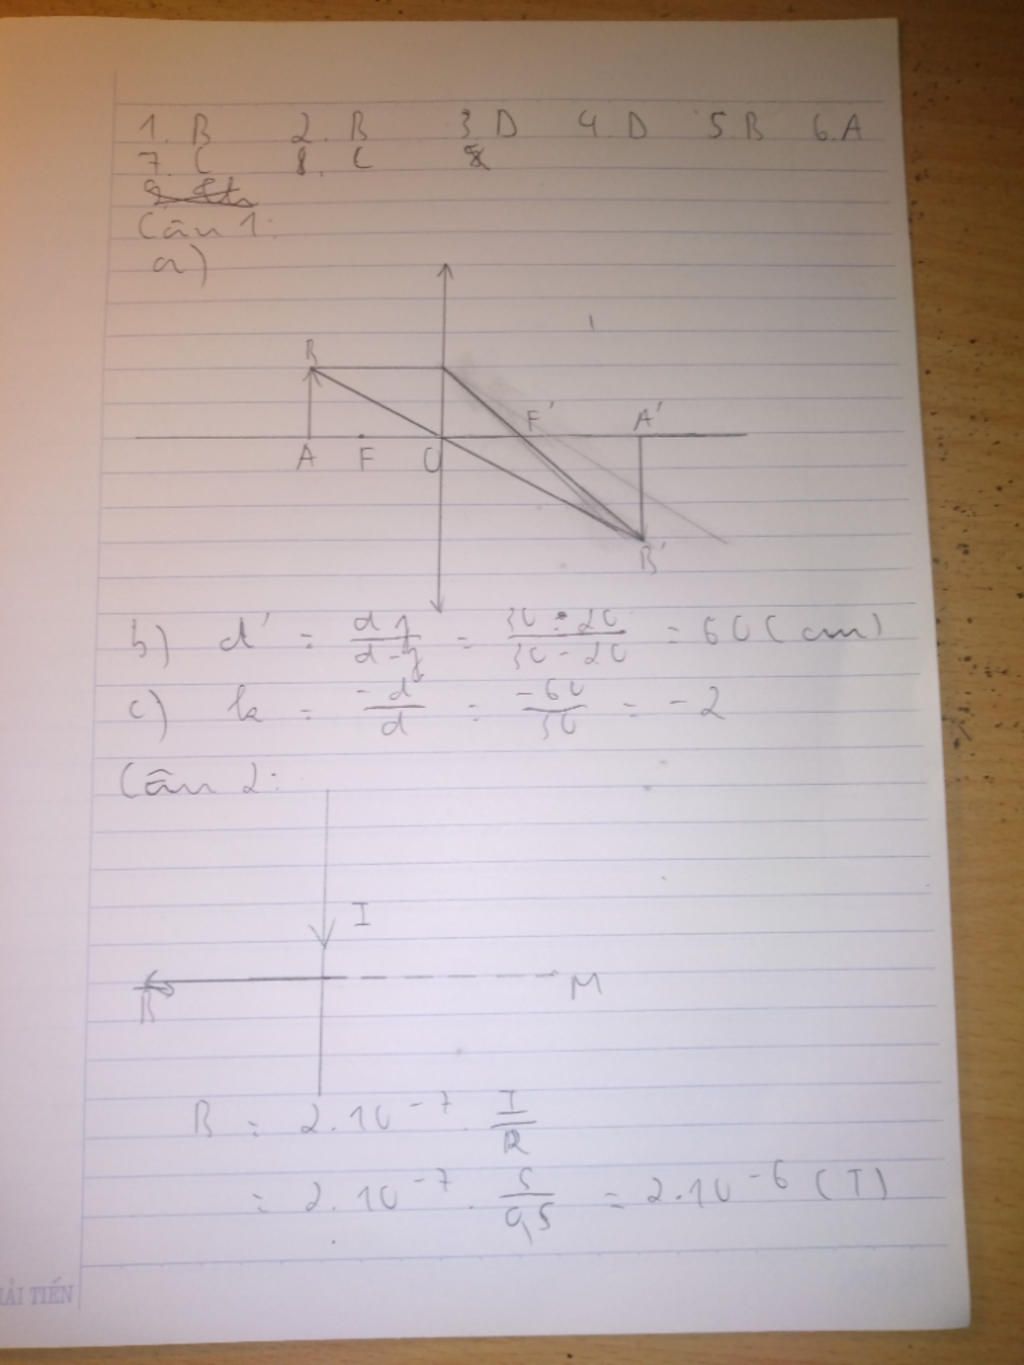 1. B 2. B 3. D 4. D 5. B 6. A
7. C 8. C
Câu 1:
a)
B
F' A'
A F O
B'
b) d' = \frac{d f}{d - f} = \frac{30 . 20}{30 - 20} = 60 (cm)
c) k = \frac{-d'}{d} = \frac{-60}{30} = -2
Câu 2:
I
M
B
B = 2.10^{-7} . \frac{I}{R}
= 2.10^{-7} . \frac{5}{0,5} = 2.10^{-6} (T)
ẢI TIẾN